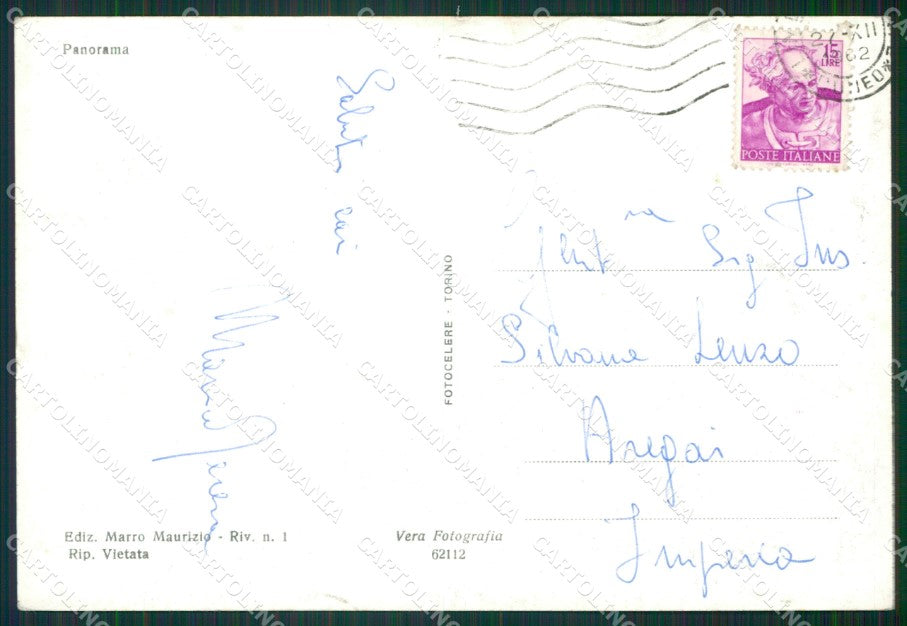 Panorama
Saluti cari
FOTOCELERE - TORINO
27-XII
62
CUNEO*
15
LIRE
POSTE ITALIANE
Gent ma Sig Ins
Silvana Lenzo
Aregai
Imperia
Ediz. Marro Maurizio - Riv. n. 1
Rip. Vietata
Vera Fotografia
62112
CARTOLINOMANIA